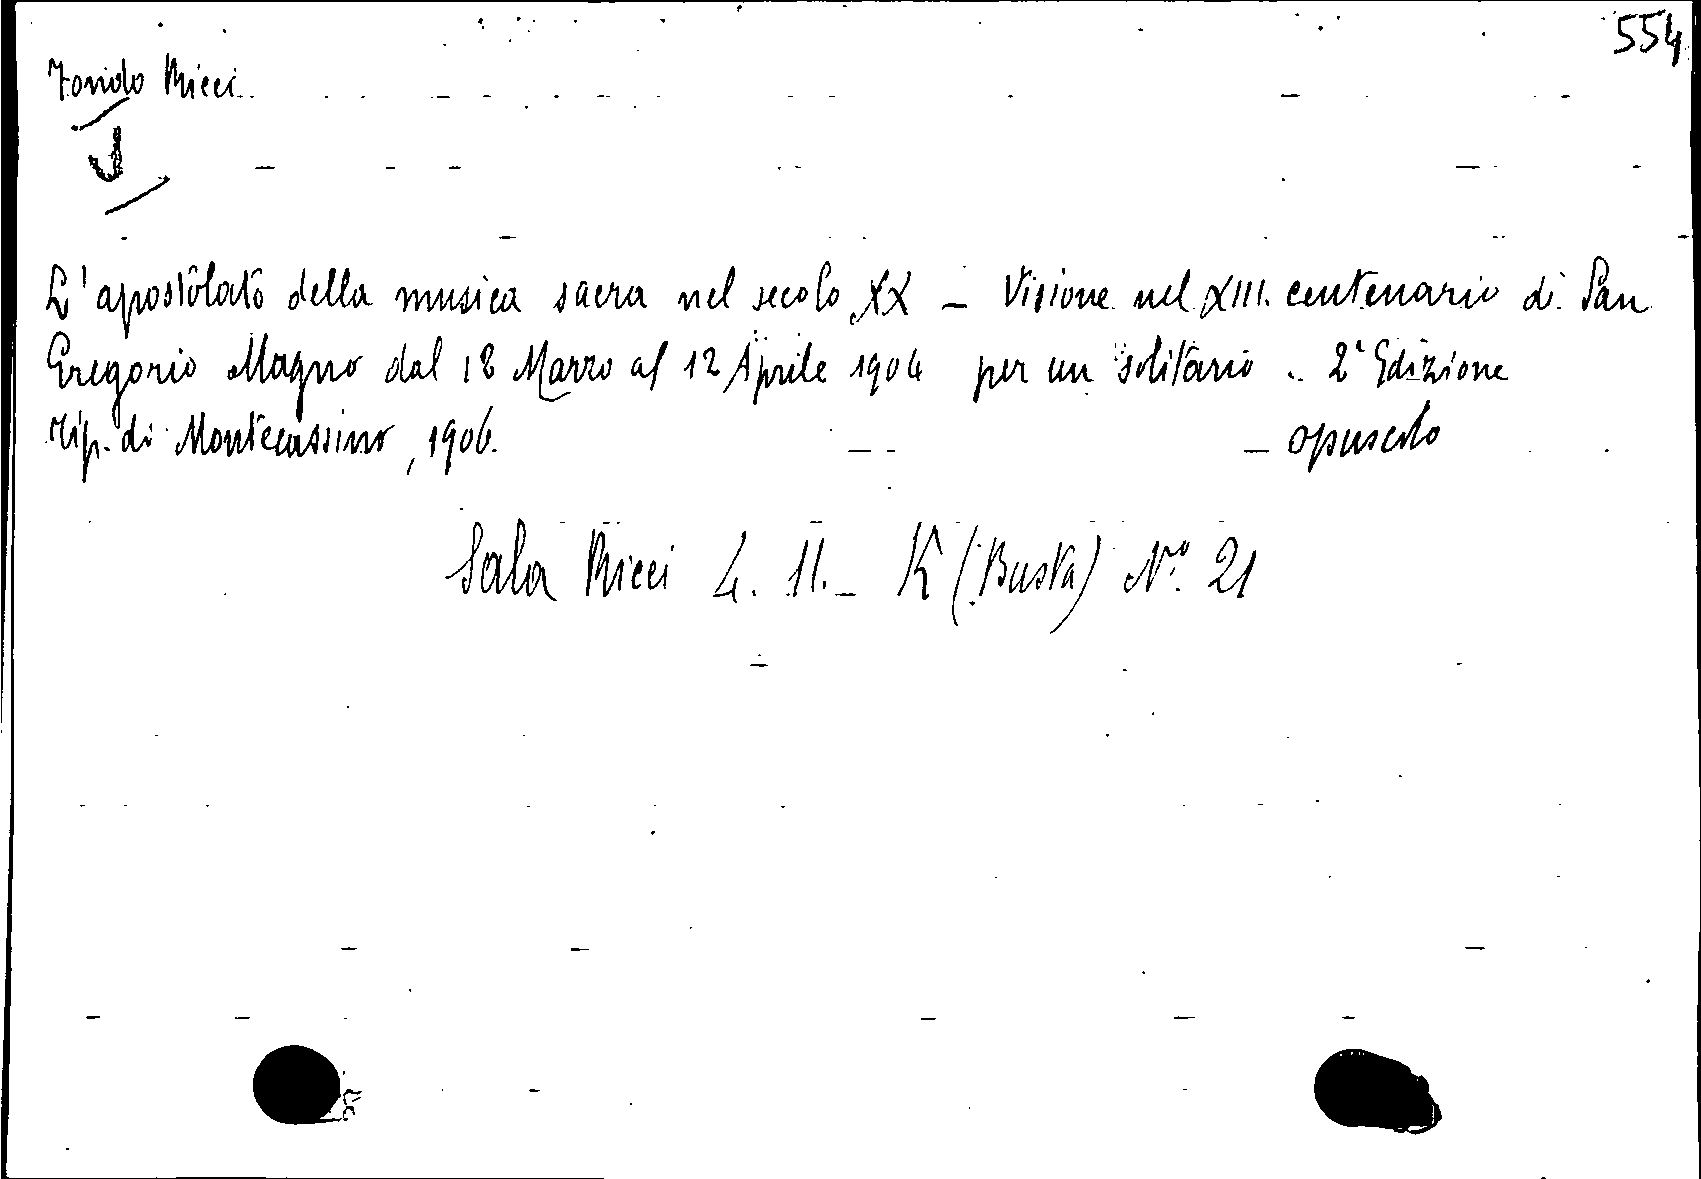 554
Fondo Ricci
L'apostolato della musica sacra nel secolo XX - Visione nel XIII. centenario di San
Gregorio Magno dal 12 Marzo al 12 Aprile 1904 per un solitario - 2ª Edizione
Tip. di Montecassino, 1906. - opuscolo
Sala Ricci 4. 11. - K (Busta) Nº 21